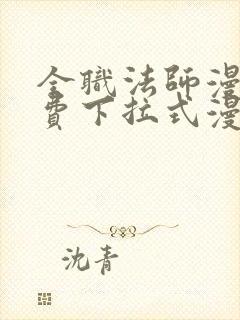 全職法師漫
費下拉式漫
沈青